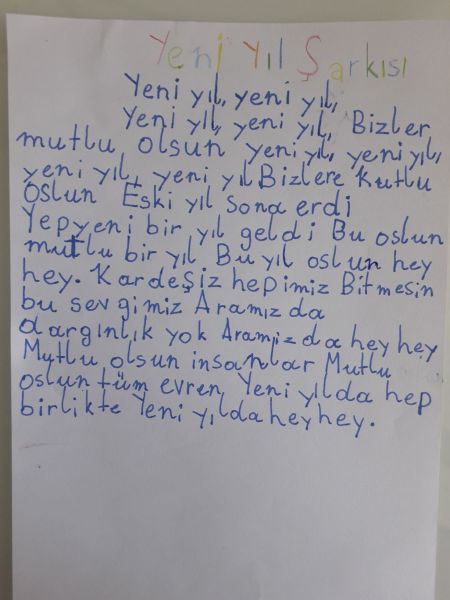 Yeni Yıl Şarkısı
Yeni yıl, yeni yıl,
Yeni yıl, yeni yıl, Bizler
mutlu olsun yeni yıl, yeni yıl,
yeni yıl, yeni yıl Bizlere Kutlu
Oslun Eski yıl sona erdi
Yepyeni bir yıl geldi Bu oslun
mutlu bir yıl Bu yıl oslun hey
hey. Kardeşiz hepimiz Bitmesin
bu sevgimiz Aramızda
dargınlık yok Aramızda hey hey
Mutlu olsun insanlar Mutlu
oslun tüm evren Yeni yılda hep
birlikte Yeni yılda hey hey.